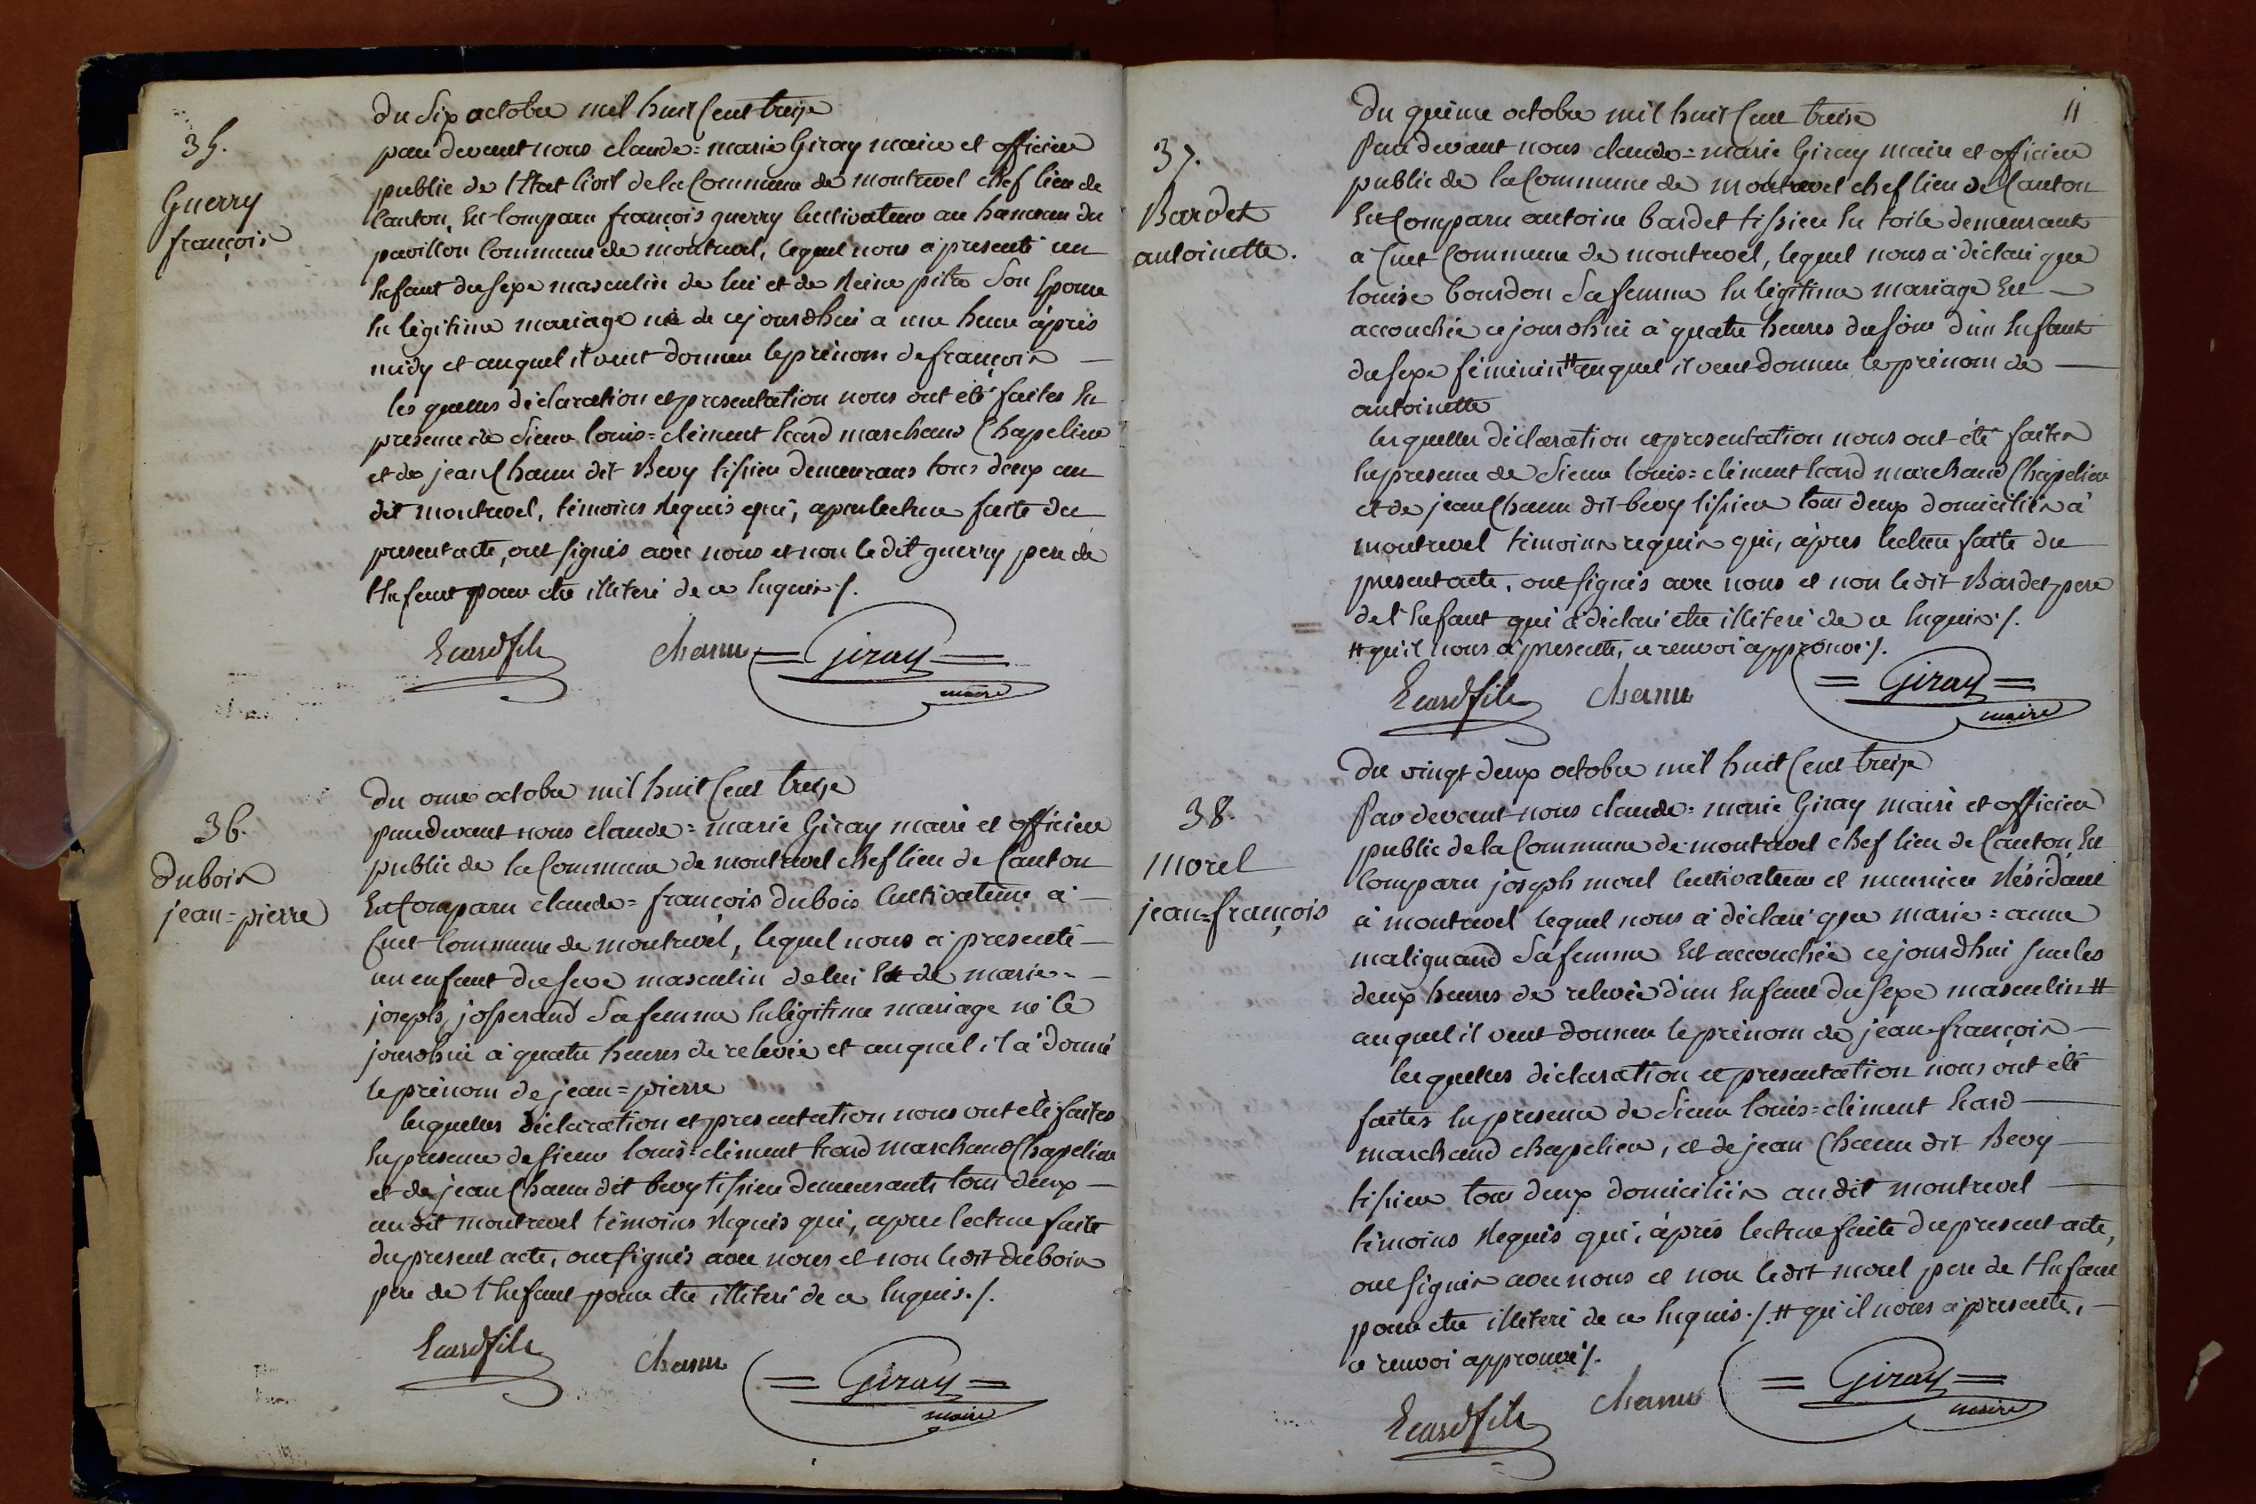 35.
Guerry
françois
du six octobre mil huit Cent treize
par devant nous claude=marie Giray maire et officier
public de l'Etat Civil de la Commune de montrevel chef lieu de
Canton, Est Comparu françois guerry Cultivateur au hameau du
pavillon Commune de montrevel, lequel nous a presenté un
Enfant du sexe masculin de lui et de Reine pitre Son Epouse
En légitime mariage né de cejourdhui a une heure après
midy et auquel il veut donner le prénom de françois
les quelles déclaration et presentation nous ont été faites En
presence de Sieur louis=clément Ecard marchand Chapelier
et de jean Chanu dit Bevy tissier demeurans tous deux au
dit montrevel, témoins Requis qui, après lecture faite du
present acte, ont signés avec nous et non le dit guerry pere de
l'Enfant pour etre illiteré de ce Enquis /.
Ecard fils chanu = Giray =
maire
36.
dubois
jean=pierre
Du onze octobre mil huit Cent treize
par devant nous claude=marie Giray maire et officier
public de la Commune de montrevel chef lieu de Canton
Est Comparu claude=françois dubois Cultivateur à
Cuet Commune de montrevel, lequel nous a presenté
un enfant du sexe masculin de lui Et de marie=
joseph josserand Sa femme En légitime mariage né Ce
jourdhui à quatre heures de relevée et auquel il a donné
le prénom de jean=pierre
lesquelles déclaration et presentation nous ont été faites
En presence de sieur louis=clément Ecard marchand Chapelier
et de jean Chanu dit bevy tissier demeurants tous deux
au dit montrevel témoins Requis qui, après lecture faite
du present acte, ont signés avec nous et non le dit dubois
pere de l'Enfant pour etre illiteré de ce Enquis./.
Ecard fils chanu = Giray =
maire
11
37.
Bardet
antoinette.
Du quinze octobre mil huit Cent treize
Par devant nous claude=marie Giray maire et officier
public de la Commune de montrevel chef lieu de Canton
Est Comparu antoine bardet tissier En toile demeurant
à Cuet Commune de montrevel, lequel nous a déclaré que
louise bourdon Sa femme En légitime mariage Est
accouchée ce jourdhui à quatre heures du soir d'un Enfant
du sexe féminin # auquel il veut donner le prénom de
antoinette
les quelles déclaration et presentation nous ont été faites
En presence de Sieur louis=clément Ecard marchand Chapelier
et de jean Chanu dit bevy tissier tous deux domiciliés à
montrevel témoins requis qui, après lecture faite du
present acte, ont signés avec nous et non le dit Bardet pere
de l'Enfant qui a déclaré etre illiteré de ce Enquis /.
# qu'il nous a presenté, ce renvoi approuvé /.
Ecard fils chanu = Giray =
maire
38.
Morel
jean=françois
Du vingt deux octobre mil huit Cent treize
Par devant nous claude=marie Giray maire et officier
public de la Commune de montrevel chef lieu de Canton, Est
Comparu joseph morel Cultivateur et meunier Résidant
à montrevel lequel nous a déclaré que marie=anne
malignand Sa femme Est accouchée cejourdhui sur les
deux heures de relevée d'un Enfant du sexe masculin #
auquel il veut donner le prénom de jean françois
les quelles déclaration et presentation nous ont été
faites En presence de Sieur louis=clément Ecard
marchand chapelier, et de jean Chanu dit Bevy
tissier tous deux domiciliés au dit montrevel
témoins Requis qui, après lecture faite du present acte,
ont signés avec nous et non le dit morel pere de l'Enfant
pour etre illiteré de ce Enquis./. # qu'il nous a presenté,
ce renvoi approuvé /.
Ecard fils chanu = Giray =
maire